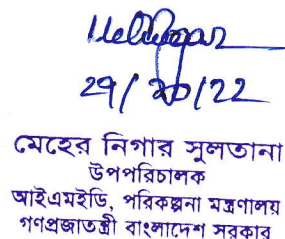 29/10/22
মেহের নিগার সুলতানা
উপপরিচালক
আইএমইডি, পরিকল্পনা মন্ত্রণালয়
গণপ্রজাতন্ত্রী বাংলাদেশ সরকার